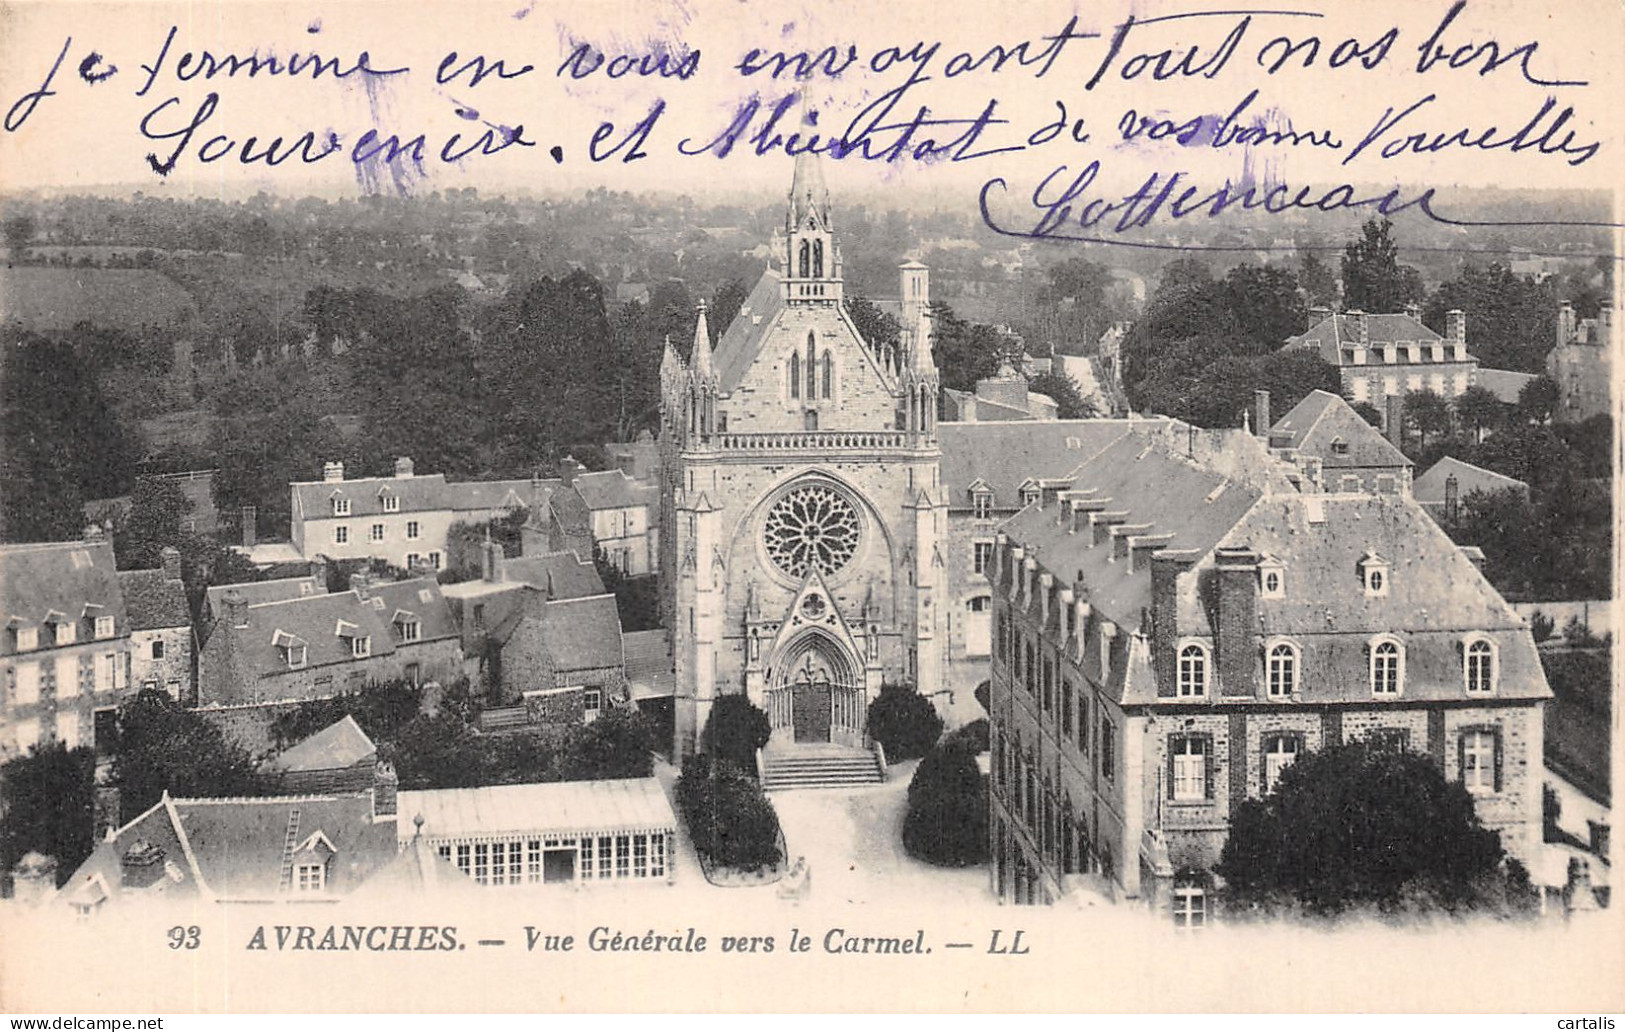 je termine en vous envoyant Tout nos bon
Souvenire. et Abientat de vos bonne Nouvelles
93 AVRANCHES. — Vue Générale vers le Carmel. — LL
cartalis